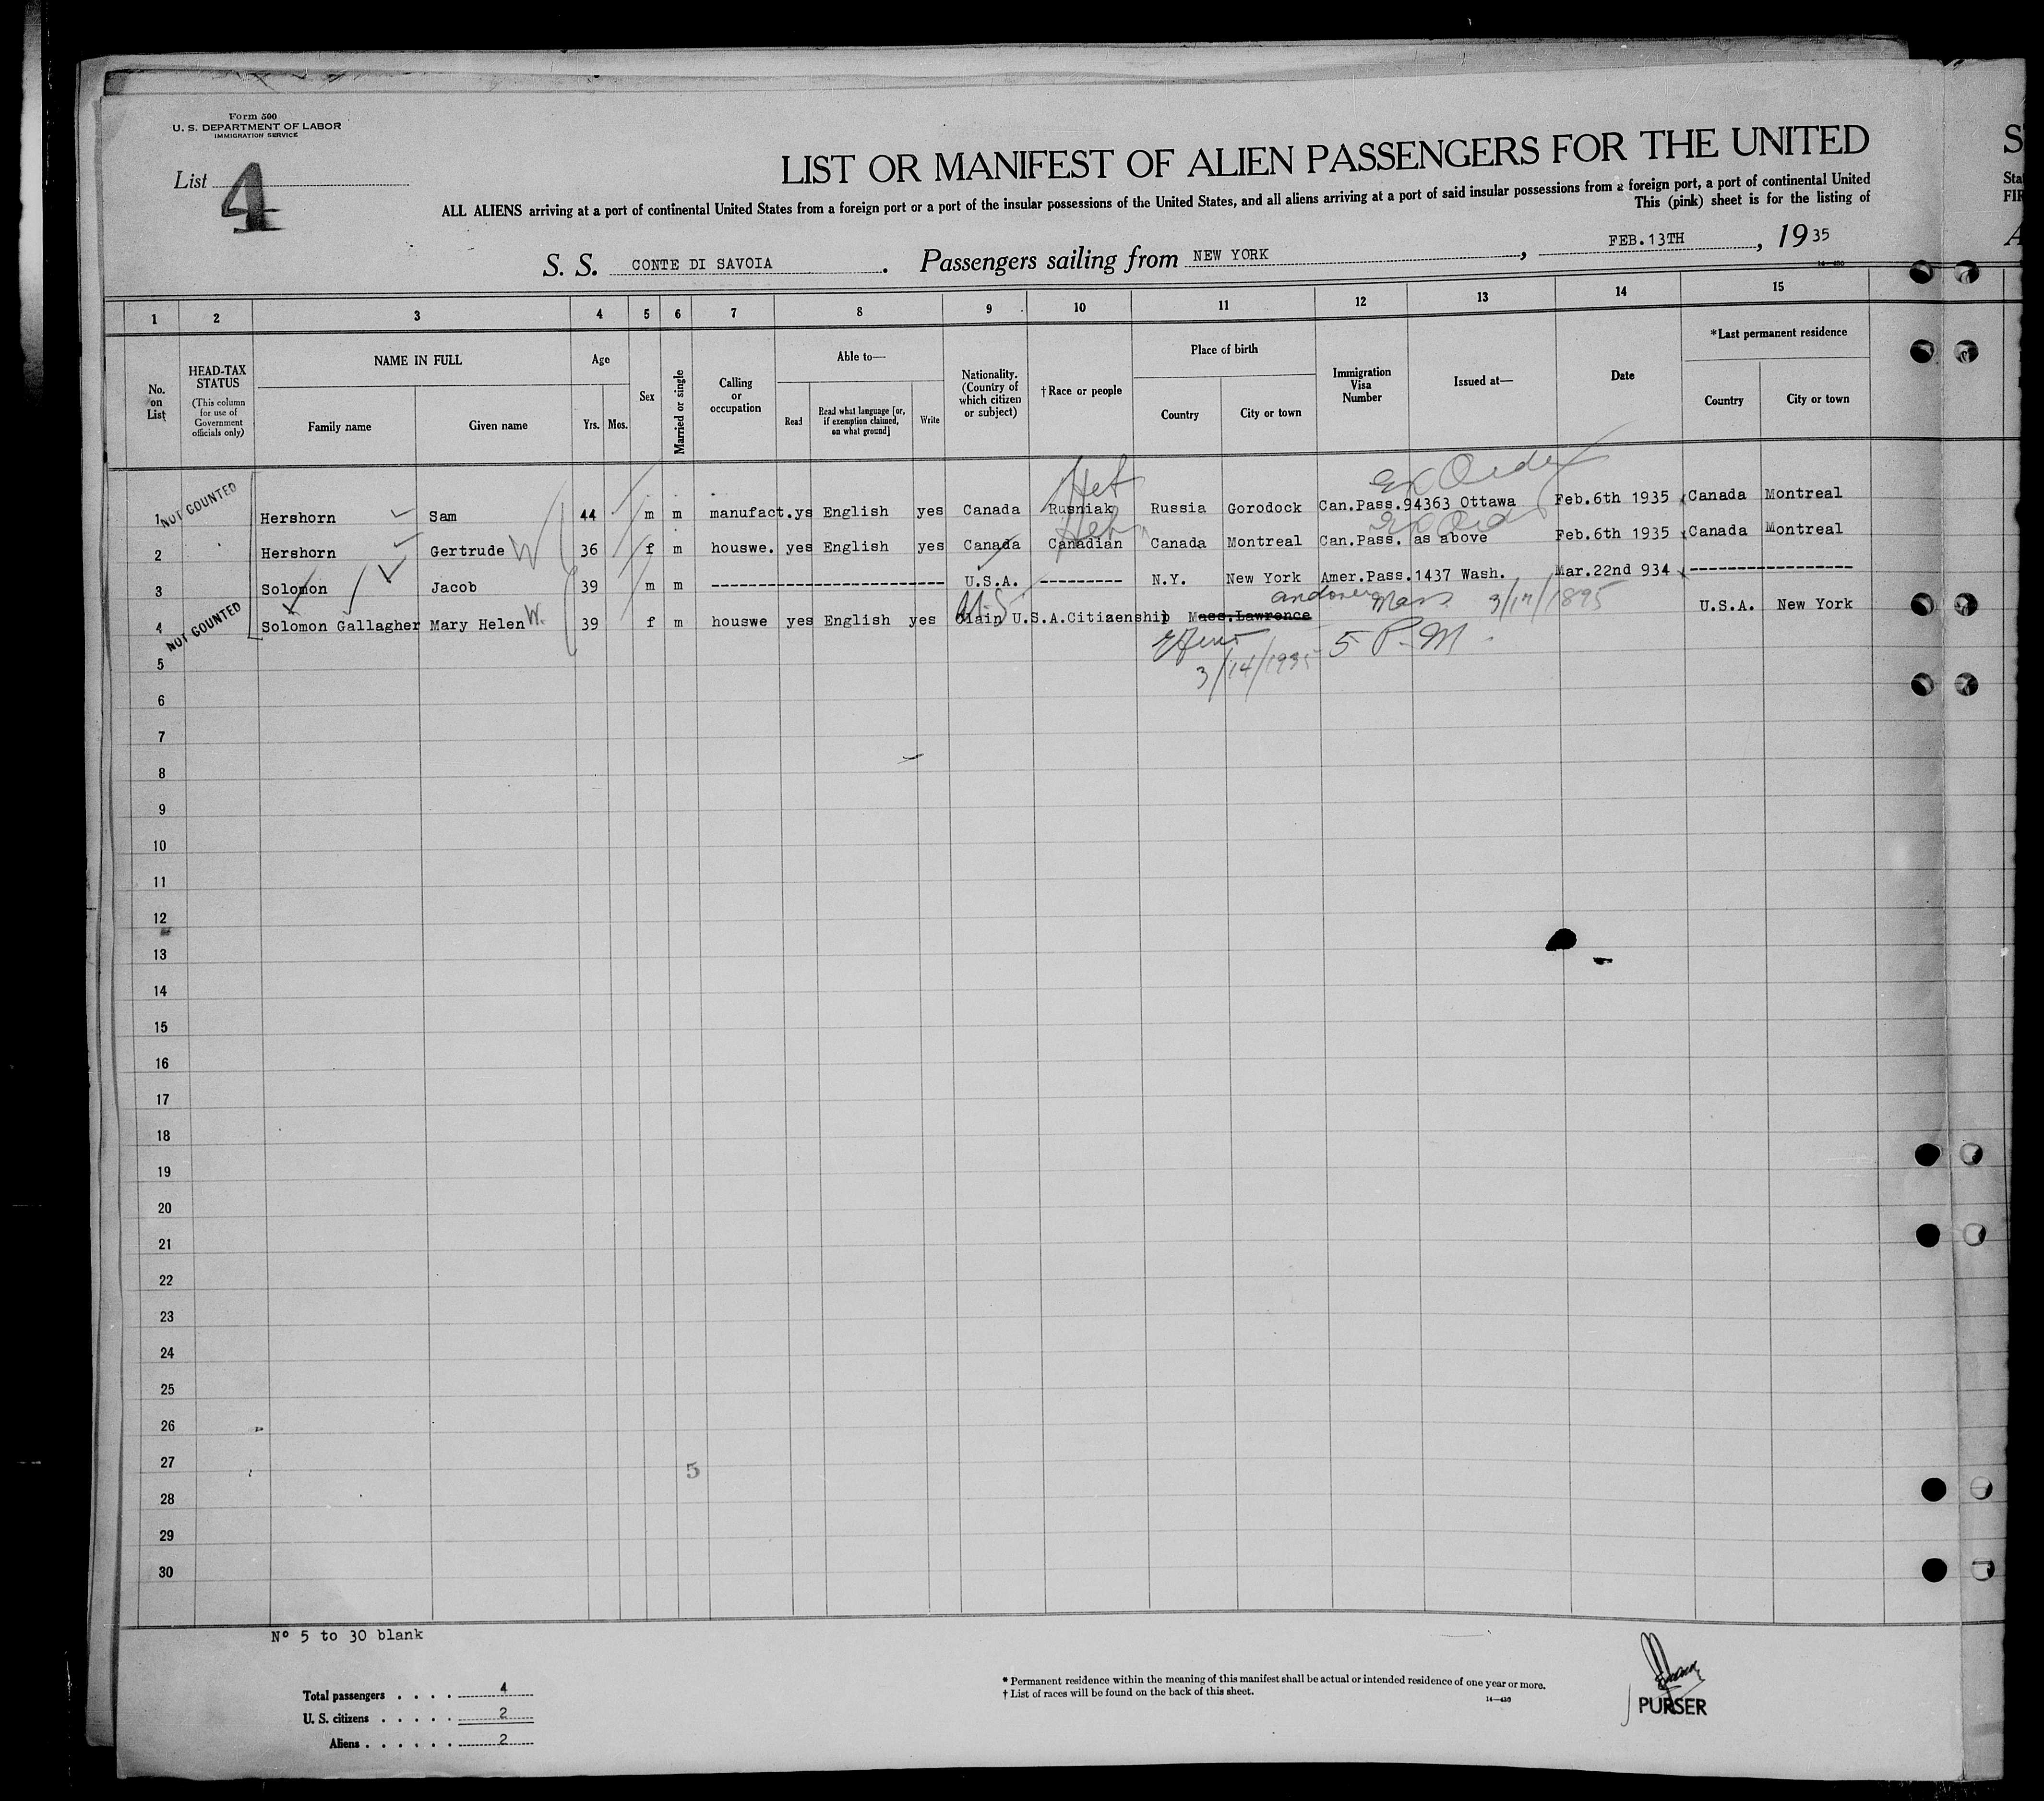 Form 500
U. S. DEPARTMENT OF LABOR
IMMIGRATION SERVICE
List 4
LIST OR MANIFEST OF ALIEN PASSENGERS FOR THE UNITED
ALL ALIENS arriving at a port of continental United States from a foreign port or a port of the insular possessions of the United States, and all aliens arriving at a port of said insular possessions from a foreign port, a port of continental United
This (pink) sheet is for the listing of
S. S. CONTE DI SAVOIA . Passengers sailing from NEW YORK , FEB.13TH , 1935
14—430
1 2 3 4 5 6 7 8 9 10 11 12 13 14 15
No. on List
HEAD-TAX STATUS (This column for use of Government officials only)
NAME IN FULL
Family name Given name
Age
Yrs. Mos.
Sex
Married or single
Calling or occupation
Able to—
Read Read what language [or, if exemption claimed, on what ground] Write
Nationality. (Country of which citizen or subject)
†Race or people
Place of birth
Country City or town
Immigration Visa Number
Issued at—
Date
*Last permanent residence
Country City or town
Heb Ex Order
NOT COUNTED
1 Hershorn Sam 44 m m manufact.ys English yes Canada Rusniak Russia Gorodock Can.Pass.94363 Ottawa Feb.6th 1935 Canada Montreal
Heb
2 Hershorn Gertrude W 36 f m houswe. yes English yes Canada Canadian Canada Montreal Can.Pass. as above Feb.6th 1935 Canada Montreal
3 Solomon Jacob 39 m m ---------------------- U.S.A. --------- N.Y. New York Amer.Pass.1437 Wash. Mar.22nd 934 -----------------
U.S. Andover Mass 3/17/1895
NOT COUNTED
4 Solomon Gallagher Mary Helen W. 39 f m houswe yes English yes Claim U.S.A.Citizenship Mass.Lawrence U.S.A. New York
5 P.M.
3/14/1935
5
6
7
8
9
10
11
12
13
14
15
16
17
18
19
20
21
22
23
24
25
26
27
5
28
29
30
Nº 5 to 30 blank
Total passengers . . . . 4
U. S. citizens . . . . . 2
Aliens . . . . . . 2
* Permanent residence within the meaning of this manifest shall be actual or intended residence of one year or more.
† List of races will be found on the back of this sheet.
14—430
PURSER